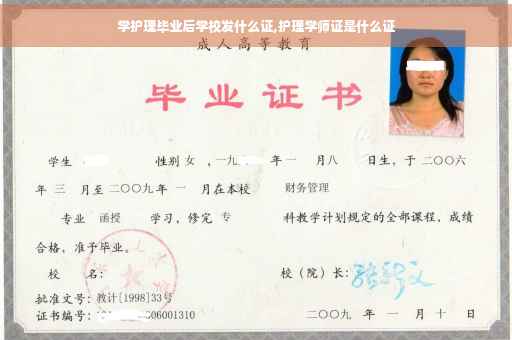 学护理毕业后学校发什么证,护理学师证是什么证
成人高等教育
毕业证书
学生 性别 女 ,一九 年一 月八 日生，于二〇〇六
年 三 月至二〇〇九年 一 月在本校 财务管理
专业 函授 学习，修完 专 科教学计划规定的全部课程，成绩
合格，准予毕业。
校 名： 校（院）长：
批准文号：教计[1998]33号
证书编号： 06001310 二〇〇九 年 一 月 十 日